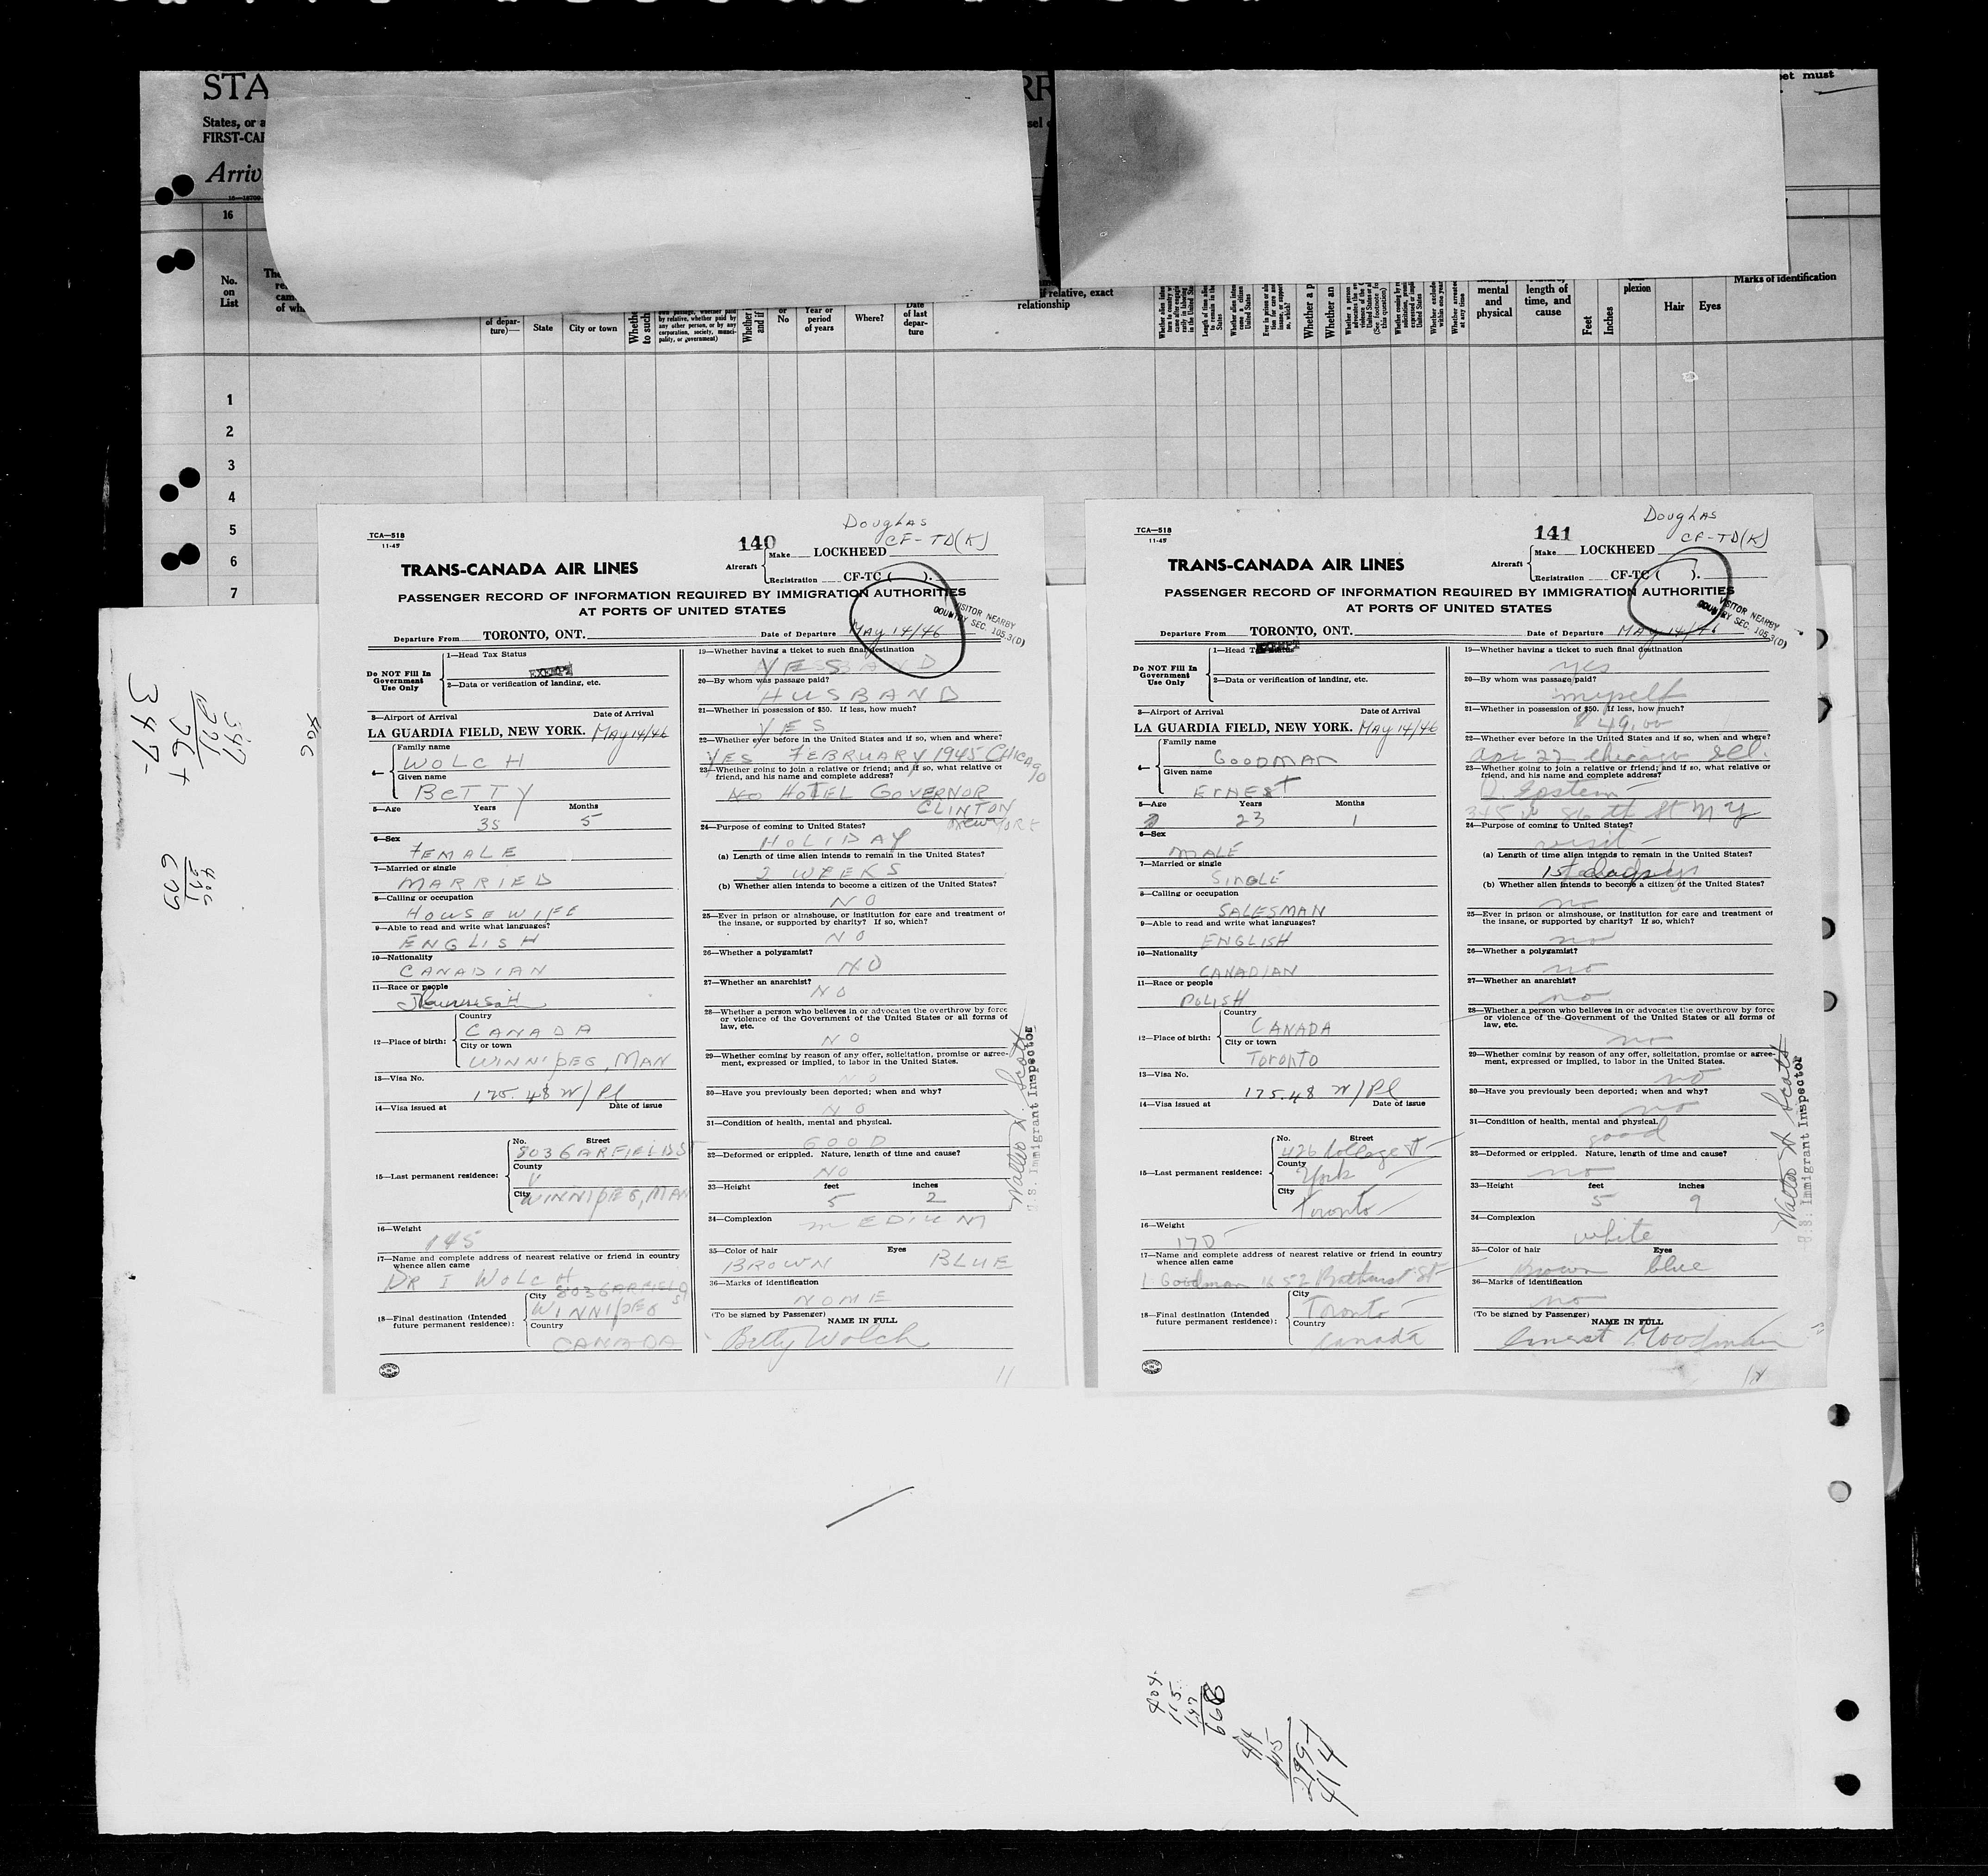 STA
et must
States, or a
FIRST-CA
Arriv
16
No.
on
List
of depar-
ture)—
State
City or town
own passage, whether paid
by relative, whether paid by
any other person, or by any
corporation, society, munici-
pality, or government)
or
No
Year or
period
of years
Where?
Date
of last
depar-
ture
if relative, exact
relationship
mental
and
physical
length of
time, and
cause
Feet
Inches
plexion
Hair
Eyes
Marks of identification
1
2
3
4
5
6
7
TCA—518
11-45
140
Douglas
CF-TD(K)
TRANS-CANADA AIR LINES
Aircraft
Make LOCKHEED
Registration CF-TC ( ).
PASSENGER RECORD OF INFORMATION REQUIRED BY IMMIGRATION AUTHORITIES
AT PORTS OF UNITED STATES
VISITOR NEARBY
COUNTRY SEC. 105.3(D)
Departure From TORONTO, ONT. Date of Departure MAY 14/46
Do NOT Fill In
Government
Use Only
1—Head Tax Status
EXEMPT
2—Data or verification of landing, etc.
3—Airport of Arrival Date of Arrival
LA GUARDIA FIELD, NEW YORK. MAY 14/46
4—
Family name
WOLCH
Given name
BETTY
5—Age Years Months
35 5
6—Sex
FEMALE
7—Married or single
MARRIED
8—Calling or occupation
HOUSEWIFE
9—Able to read and write what languages?
ENGLISH
10—Nationality
CANADIAN
11—Race or people
12—Place of birth:
Country
CANADA
City or town
WINNIPEG, MAN
13—Visa No.
175.48 W/Pl
14—Visa issued at Date of issue
15—Last permanent residence:
No. Street
803 GARFIELD S
County
City
WINNIPEG, MAN
16—Weight
145
17—Name and complete address of nearest relative or friend in country
whence alien came
DR I WOLCH
803 GARFIELD
ST
18—Final destination (Intended
future permanent residence):
City
WINNIPEG
Country
CANADA
19—Whether having a ticket to such final destination
YES
20—By whom was passage paid?
HUSBAND
21—Whether in possession of $50. If less, how much?
YES
22—Whether ever before in the United States and if so, when and where?
YES FEBRUARY 1945 CHICAGO
23—Whether going to join a relative or friend; and if so, what relative or
friend, and his name and complete address?
NO HOTEL GOVERNOR
CLINTON
NEW YORK
24—Purpose of coming to United States?
HOLIDAY
(a) Length of time alien intends to remain in the United States?
2 WEEKS
(b) Whether alien intends to become a citizen of the United States?
NO
25—Ever in prison or almshouse, or institution for care and treatment of
the insane, or supported by charity? If so, which?
NO
26—Whether a polygamist?
NO
27—Whether an anarchist?
NO
28—Whether a person who believes in or advocates the overthrow by force
or violence of the Government of the United States or all forms of
law, etc.
NO
29—Whether coming by reason of any offer, solicitation, promise or agree-
ment, expressed or implied, to labor in the United States.
NO
30—Have you previously been deported; when and why?
NO
31—Condition of health, mental and physical.
GOOD
32—Deformed or crippled. Nature, length of time and cause?
NO
33—Height feet inches
5 2
34—Complexion
MEDIUM
35—Color of hair Eyes
BROWN BLUE
36—Marks of identification
NONE
(To be signed by Passenger)
NAME IN FULL
Betty Wolch
11
Walter H. Scott
U.S. Immigrant Inspector
TCA—518
11-45
141
Douglas
CF-TD(K)
TRANS-CANADA AIR LINES
Aircraft
Make LOCKHEED
Registration CF-TC ( ).
PASSENGER RECORD OF INFORMATION REQUIRED BY IMMIGRATION AUTHORITIES
AT PORTS OF UNITED STATES
VISITOR NEARBY
COUNTRY SEC. 105.3(D)
Departure From TORONTO, ONT. Date of Departure MAY 14/46
Do NOT Fill In
Government
Use Only
1—Head Tax Status
EXEMPT
2—Data or verification of landing, etc.
3—Airport of Arrival Date of Arrival
LA GUARDIA FIELD, NEW YORK. MAY 14/46
4—
Family name
GOODMAN
Given name
ERNEST
5—Age Years Months
23 1
6—Sex
MALE
7—Married or single
SINGLE
8—Calling or occupation
SALESMAN
9—Able to read and write what languages?
ENGLISH
10—Nationality
CANADIAN
11—Race or people
POLISH
12—Place of birth:
Country
CANADA
City or town
Toronto
13—Visa No.
175.48 W/Pl
14—Visa issued at Date of issue
15—Last permanent residence:
No. Street
426 College St
County
York
City
Toronto
16—Weight
170
17—Name and complete address of nearest relative or friend in country
whence alien came
I. Goodman 1652 Bathurst St
18—Final destination (Intended
future permanent residence):
City
Toronto
Country
Canada
19—Whether having a ticket to such final destination
yes
20—By whom was passage paid?
myself
21—Whether in possession of $50. If less, how much?
$49.00
22—Whether ever before in the United States and if so, when and where?
Apr 22 Chicago Ill.
23—Whether going to join a relative or friend; and if so, what relative or
friend, and his name and complete address?
Epstein
345 W 86th St N Y
24—Purpose of coming to United States?
visit
(a) Length of time alien intends to remain in the United States?
days
(b) Whether alien intends to become a citizen of the United States?
no
25—Ever in prison or almshouse, or institution for care and treatment of
the insane, or supported by charity? If so, which?
no
26—Whether a polygamist?
no
27—Whether an anarchist?
no
28—Whether a person who believes in or advocates the overthrow by force
or violence of the Government of the United States or all forms of
law, etc.
no
29—Whether coming by reason of any offer, solicitation, promise or agree-
ment, expressed or implied, to labor in the United States.
no
30—Have you previously been deported; when and why?
no
31—Condition of health, mental and physical.
good
32—Deformed or crippled. Nature, length of time and cause?
no
33—Height feet inches
5 9
34—Complexion
white
35—Color of hair Eyes
Brown blue
36—Marks of identification
no
(To be signed by Passenger)
NAME IN FULL
Ernest Goodman
Walter H Scott
U.S. Immigrant Inspector
347
404
115
147
666
299
414